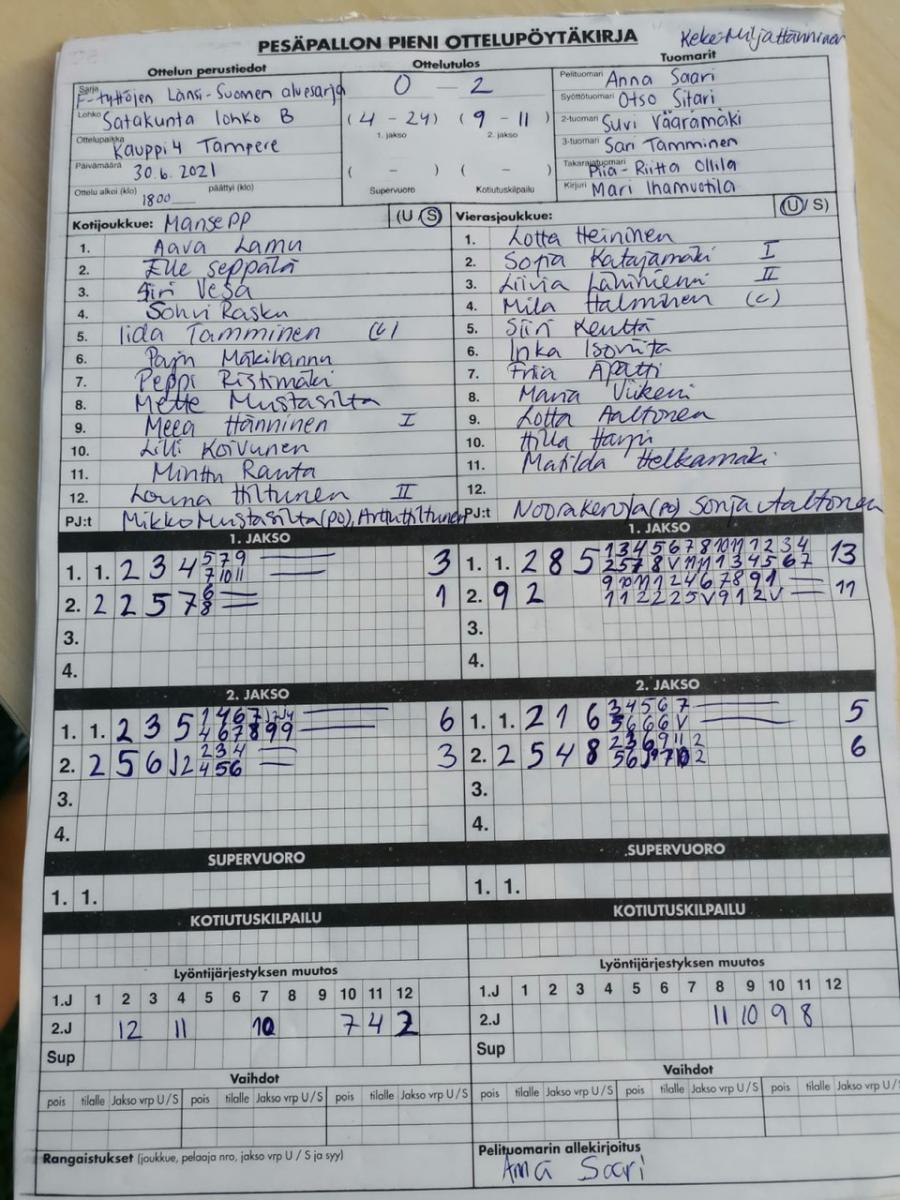 PESÄPALLON PIENI OTTELUPÖYTÄKIRJA
Keke-Milja Hänninen
Ottelun perustiedot
Ottelutulos
Tuomarit
Sarja F-tyttöjen Länsi-Suomen aluesarja
Lohko Satakunta lohko B
Ottelupaikka Kauppi 4 Tampere
Päivämäärä 30.6.2021
Ottelu alkoi (klo) 1800 päättyi (klo)
0 - 2
(4 - 24) (9 - 11)
1. jakso 2. jakso
( - ) ( - )
Supervuoro Kotiutuskilpailu
Pelituomari Anna Saari
Syöttötuomari Otso Sitari
2-tuomari Suvi Vääramäki
3-tuomari Sari Tamminen
Takarajatuomari Piia-Riitta Ollila
Kirjuri Mari Ihamuotila
Kotijoukkue: Manse PP (U/S)
1. Aava Lamu
2. Elle Seppälä
3. Siri Vesa
4. Sohvi Rasku
5. Iida Tamminen (C)
6. Mäkihannu
7. Peppi Ristimäki
8. Mette Mustasilta
9. Meea Hänninen I
10. Lilli Koivunen
11. Minttu Ranta
12. Louna Hiltunen II
PJ:t Mikko Mustasilta (po), Arttu Hiltunen
Vierasjoukkue: (U/S)
1. Lotta Heininen
2. Sofia Katajamäki I
3. Liivia II
4. Mila Halminen (C)
5. Siiri Kenttä
6. Inka
7. Apatti
8. Maria
9. Lotta Aaltonen
10. Hilla Harju
11. Matilda Helkamäki
12.
PJ:t Noora (po) Sonja Aaltonen
1. JAKSO
1. 1. 2 3 4 5 7 9 3
7 10 11
2. 2 2 5 7 6 1
8
3.
4.
1. JAKSO
1. 1. 2 8 5 1 3 4 5 6 7 8 10 11 1 2 3 4 13
2 5 7 8 V 11 11 1 3 4 5 6 7
2. 9 2 9 10 11 1 2 4 6 7 8 9 1 11
1 1 2 2 2 5 V 9 1 2 V
3.
4.
2. JAKSO
1. 1. 2 3 5 1 4 6 7 6
4 6 7 8 9 9
2. 2 5 6 2 3 4 3
4 5 6
3.
4.
2. JAKSO
1. 1. 2 1 6 3 4 5 6 7 5
5 6 6 6 V
2. 2 5 4 8 2 3 6 9 11 2 6
3.
4.
SUPERVUORO
1. 1.
SUPERVUORO
1. 1.
KOTIUTUSKILPAILU
KOTIUTUSKILPAILU
Lyöntijärjestyksen muutos
1.J 1 2 3 4 5 6 7 8 9 10 11 12
2.J 12 11 10 7 4 2
Sup
Lyöntijärjestyksen muutos
1.J 1 2 3 4 5 6 7 8 9 10 11 12
2.J 11 10 9 8
Sup
Vaihdot
pois tilalle Jakso vrp U/S pois tilalle Jakso vrp U/S pois tilalle Jakso vrp U/S
Vaihdot
pois tilalle Jakso vrp U/S pois tilalle Jakso vrp U/S pois tilalle Jakso vrp U/S
Rangaistukset (joukkue, pelaaja nro, jakso vrp U/S ja syy)
Pelituomarin allekirjoitus
Anna Saari